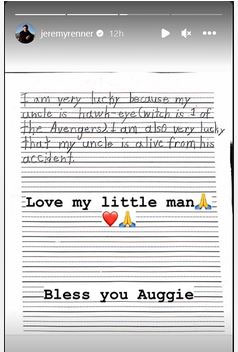 jeremyrenner 12h
I am very lucky because my
uncle is hawk-eye(witch is 1 of
the Avengers). I am also very lucky
that my uncle is alive from his
accident.
Love my little man🙏
❤️🙏
Bless you Auggie